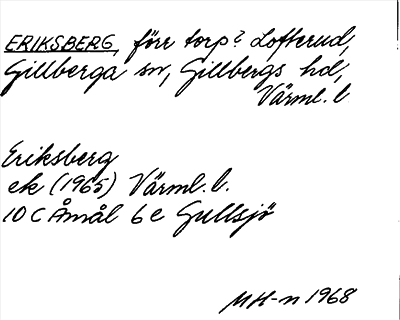 ERIKSBERG, förr torp? Lofterud,
Gillberga sn, Gillbergs hd,
Värml. l
Eriksberg
ek (1965) Värml. l.
10 C Åmål 6 e Gullsjö
MH-n 1968